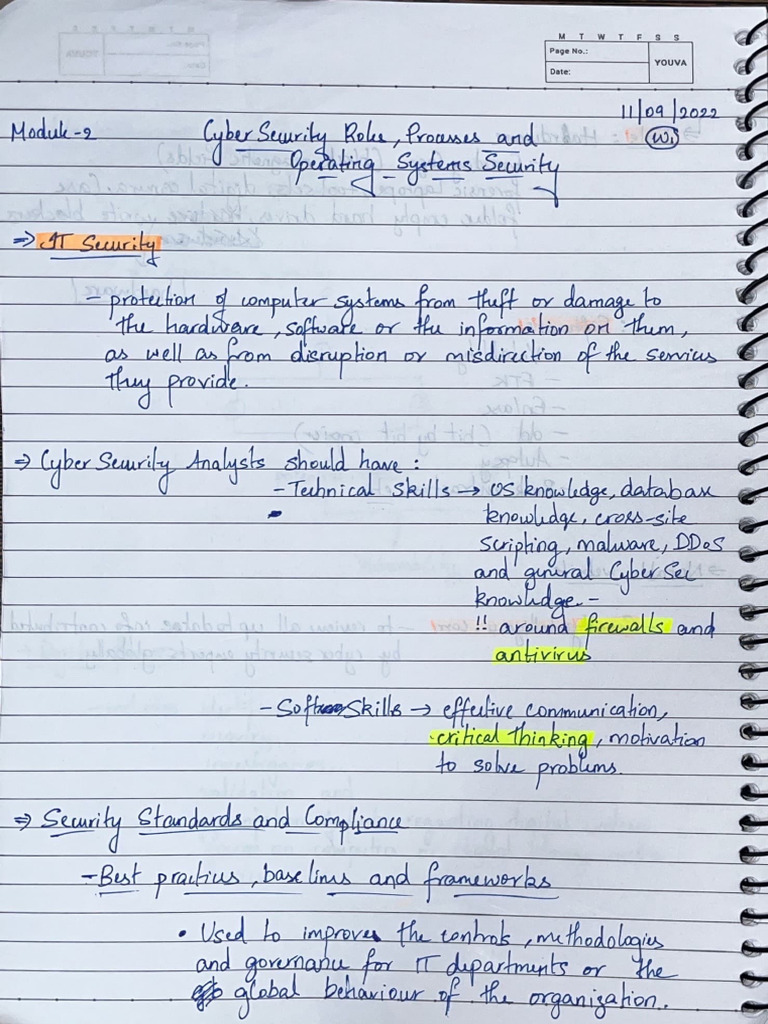 M T W T F S S
Page No.:
Date:
YOUVA
11/09/2022
Module-2 Cyber Security Roles, Processes and W1
Operating Systems Security
⇒ IT Security
- protection of computer systems from theft or damage to
the hardware, software or the information on them,
as well as from disruption or misdirection of the services
they provide.
⇒ Cyber Security Analysts should have :
- Technical Skills → OS knowledge, database
knowledge, cross-site
scripting, malware, DDoS
and general Cyber Sec
knowledge. -
!! around firewalls and
antivirus
- Soft Skills → effective communication,
critical thinking, motivation
to solve problems.
⇒ Security Standards and Compliance
- Best practices, baselines and frameworks
• Used to improve the controls, methodologies
and governance for IT departments or the
global behaviour of the organization.